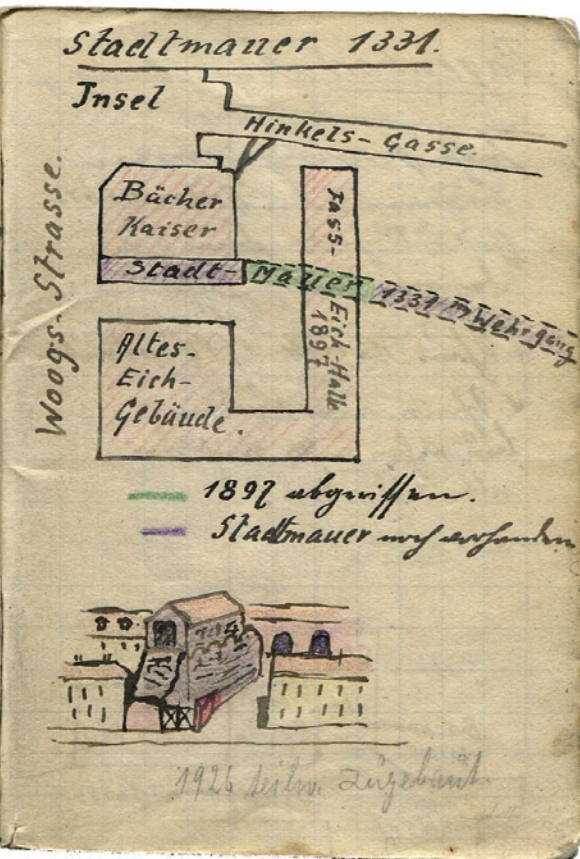 Stadtmauer 1331.
Insel
Hinkels-Gasse.
Woogs-Strasse.
Bächer
Kaiser
Stadt-Mauer 1331 m Wehrgang
Fass-Eich-Halle
1897
Altes-
Eich-
Gebäude.
1897 abgerissen.
Stadtmauer noch vorhanden
1926 teilw. zugebaut.